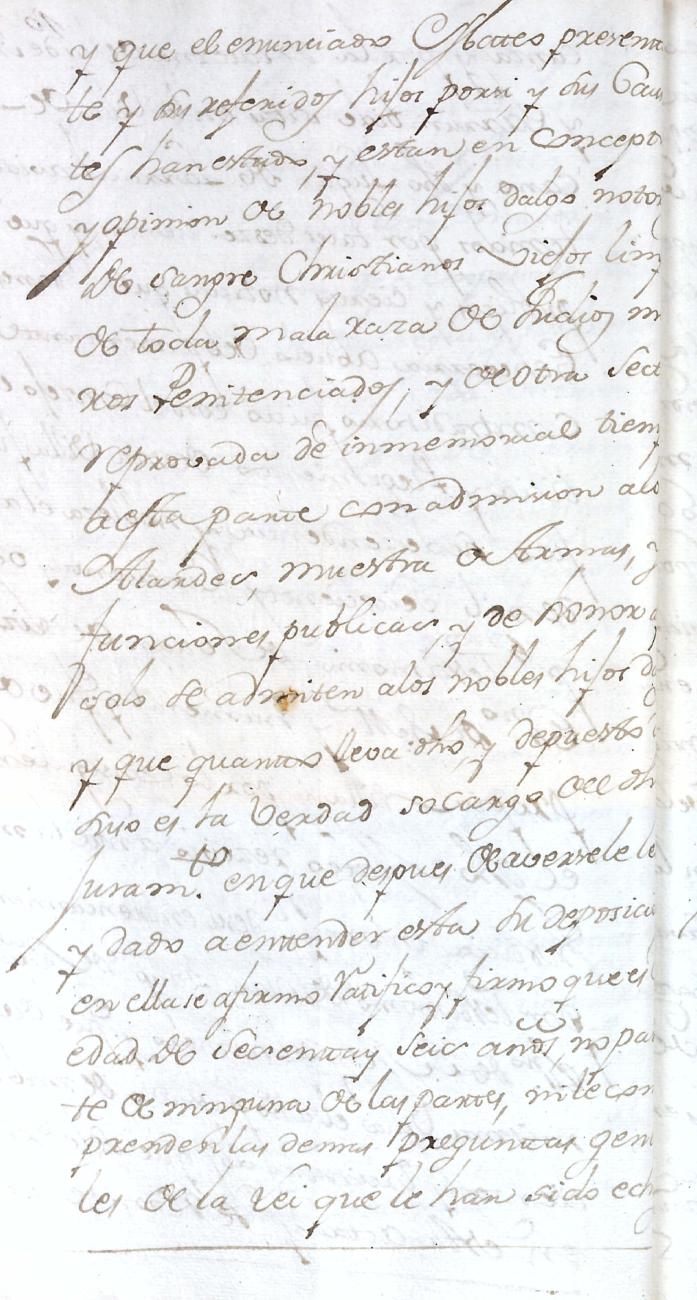 y que el enunciado Mateo presen
te y sus referidos hijos por si, y sus Cau
tes han estado, y están en Concept
y opinion de nobles hijos dalgo notor
de sangre Christianos Viejos lim
de toda mala raza de Judios m
ros Penitenciados, y de otra sect
reprovada de inmemorial tiem
a esta parte con admision alo
Alardes, muestra de Armas, y
funciones publicas, y de honor q
solo se admiten a los nobles hijos d
y que quanto lleva dho, y depuesto
suso es la Verdad so cargo del dh
Juramto. en que despues de averse le le
y dado a entender esta su deposici
en ella se afirmo Ratifico y firmo que es
edad de Sesenta y seis años, no pa
te de ninguna de las partes, ni le con
prenden las demas preguntas gene
les de la lei que le han sido ech